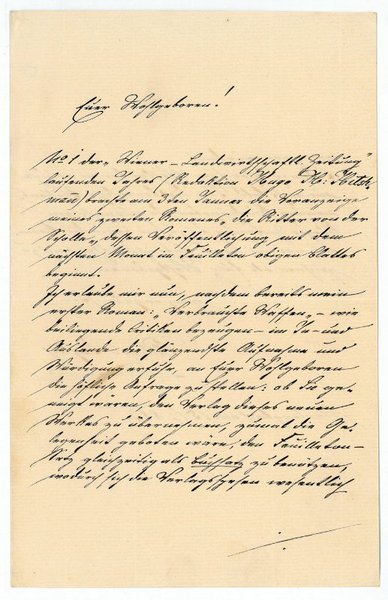 Euer Wohlgeboren!
No 1 der „Wiener-Landwirthschaftl. Zeitung"
laufenden Jahres (Redaktion Hugo H: Hitsch-
mann) brachte am 3ten Jänner die Voranzeige
meines zweiten Romanes „die Ritter von der
Scholle", dessen Veröffentlichung mit dem
nächsten Monat im Feuilleton obigen Blattes
beginnt.
Ich erlaube mir nun, nachdem bereits mein
erster Roman: „Verbrauchte Waffen" – wie
beiliegende Critiken bezeugen – im In- und
Auslande die glänzendste Aufnahme und
Würdigung erfuhr, an Euer Wohlgeboren
die höfliche Anfrage zu stellen: ob Sie ge-
neigt wären, den Verlag dieses neuen
Werkes zu übernehmen, zumal die Ge-
legenheit geboten wäre, den Feuilleton-
Satz gleichzeitig als Buchsatz zu benützen,
wodurch sich die Verlagsspesen wesentlich